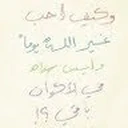 وكيف أحب
غير الله يوماً
وليس سواه
في الأكوان
باقي ؟!